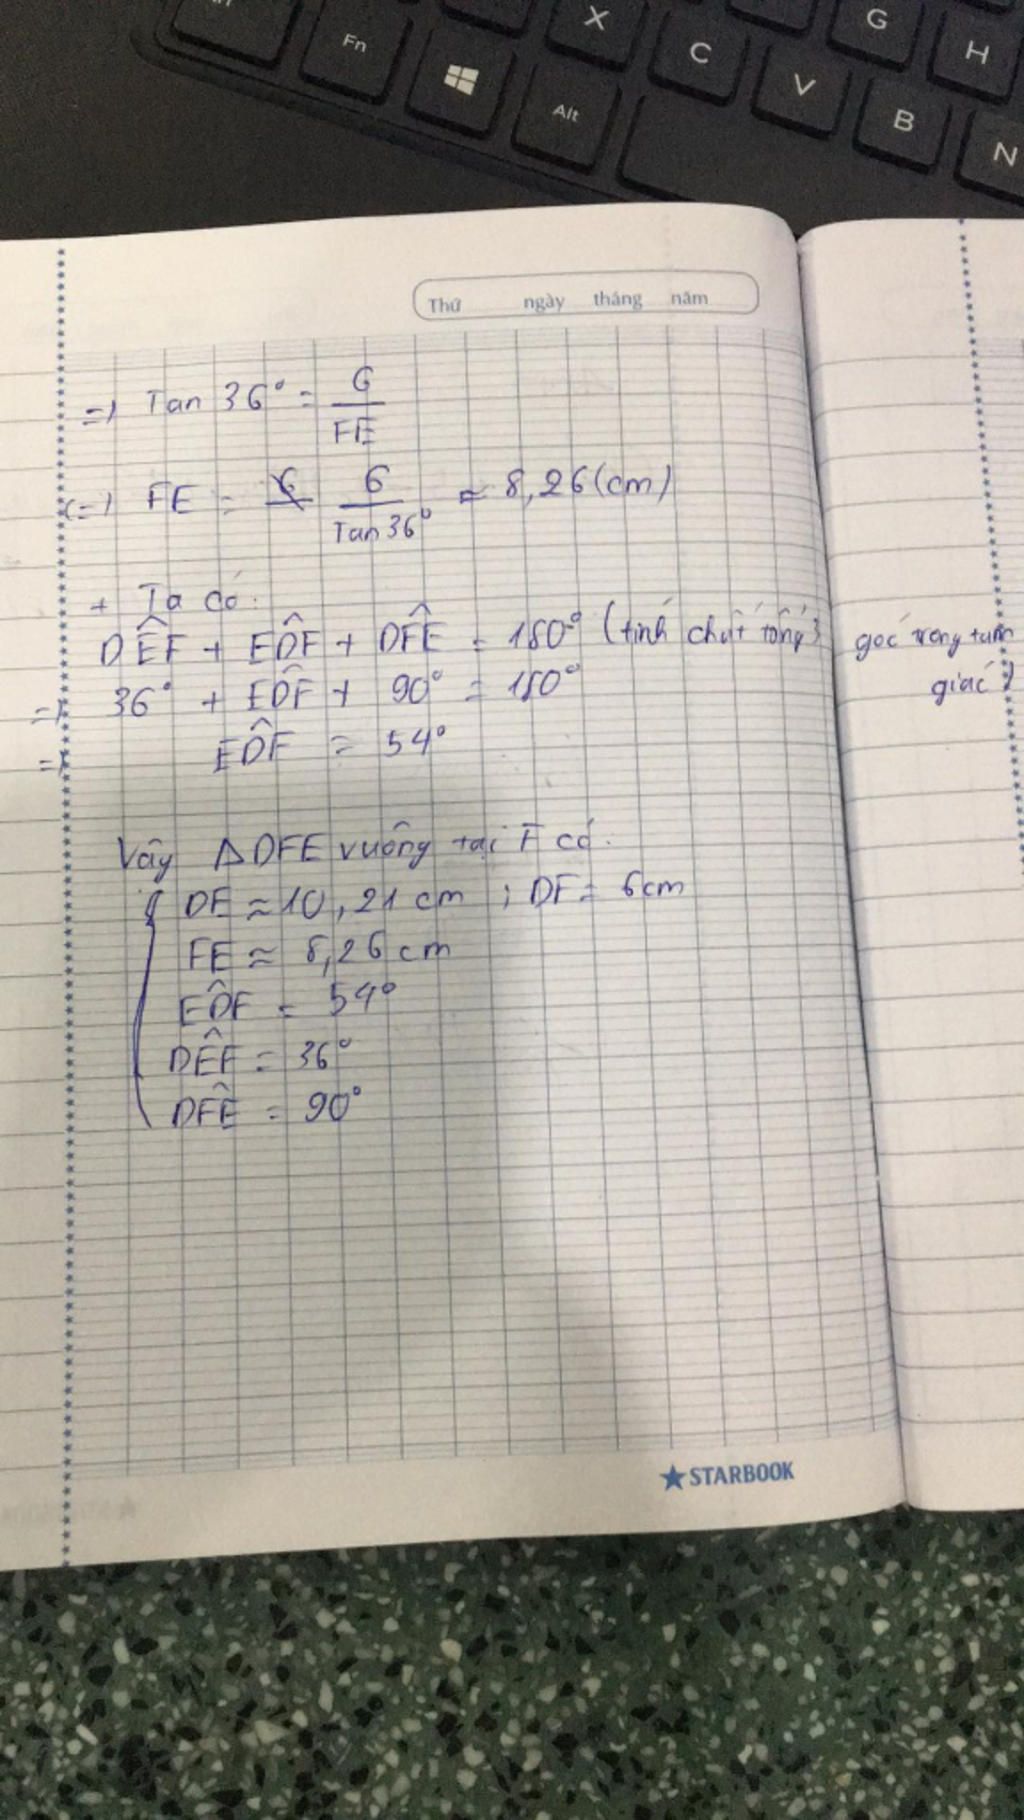 Fn
Alt
X
C
V
G
B
H
N
Thứ ngày tháng năm
=) Tan 36° = 6/FE
(=) FE = 6 6/Tan 36° ≈ 8,26 (cm)
+ Ta có:
DÊF + ED̂F + DF̂E = 180° (tính chất tổng 3 góc trong tam giác)
=) 36° + ED̂F + 90° = 180°
=) ED̂F = 54°
Vậy Δ DFE vuông tại F có:
DE ≈ 10,21 cm ; DF = 6cm
FE ≈ 8,26 cm
ED̂F = 54°
DÊF = 36°
DF̂E = 90°
STARBOOK